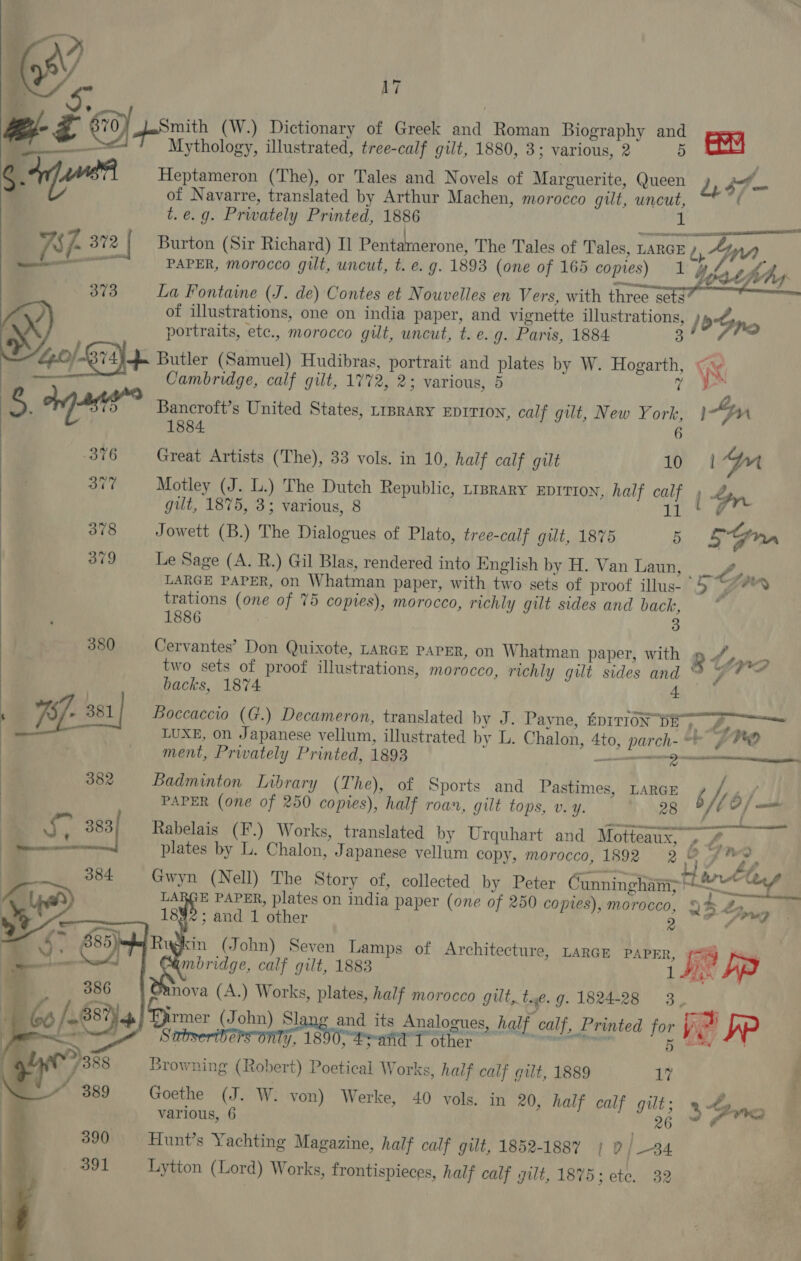 17
370) Smith (W.) Dictionary of Greek and Roman Biography and
Mythology, illustrated, tree-calf gilt, 1880, 3; various, 2 5
Heptameron (The), or Tales and Novels of Marguerite, Queen
of Navarre, translated by Arthur Machen, morocco gilt, uncut,
t. e. g. Privately Printed, 1886 1
372 Burton (Sir Richard) Il Pentamerone, The Tales of Tales, LARGE
PAPER, morocco gilt, uncut, t. e. g. 1893 (one of 165 copies) 1
373 La Fontaine (J. de) Contes et Nouvelles en Vers, with three sets
of illustrations, one on india paper, and vignette illustrations,
portraits, etc., morocco gilt, uncut, t. e. g. Paris, 1884 3
374) Butler (Samuel) Hudibras, portrait and plates by W. Hogarth,
Cambridge, calf gilt, 1772, 2; various, 5 7
375 Bancroft's United States, LIBRARY EDITION, calf gilt, New York,
1884 6
376 Great Artists (The), 33 vols. in 10, half calf gilt 10
377 Motley (J. L.) The Dutch Republic, LIBRARY EDITION, half calf
gilt, 1875, 3; various, 8 11
378 Jowett (B.) The Dialogues of Plato, tree-calf gilt, 1875 5
379 Le Sage (A. R.) Gil Blas, rendered into English by H. Van Laun,
LARGE PAPER, on Whatman paper, with two sets of proof illus-
trations (one of 75 copies), morocco, richly gilt sides and back,
1886 3
380 Cervantes' Don Quixote, LARGE PAPER, on Whatman paper, with
two sets of proof illustrations, morocco, richly gilt sides and
backs, 1874 4
381 Boccaccio (G.) Decameron, translated by J. Payne, ÉDITION DE
LUXE, on Japanese vellum, illustrated by L. Chalon, 4to, parch-
ment, Privately Printed, 1893 2
382 Badminton Library (The), of Sports and Pastimes, LARGE
PAPER (one of 250 copies), half roan, gilt tops, v. y. 28
383 Rabelais (F.) Works, translated by Urquhart and Motteaux,
plates by L. Chalon, Japanese vellum copy, morocco, 1892 2
384 Gwyn (Nell) The Story of, collected by Peter Cunningham,
LARGE PAPER, plates on india paper (one of 250 copies), morocco,
1892; and 1 other 2
385) Ruskin (John) Seven Lamps of Architecture, LARGE PAPER,
Cambridge, calf gilt, 1883 1
386 Canova (A.) Works, plates, half morocco gilt, t. e. g. 1824-28 3
387) Farmer (John) Slang and its Analogues, half calf, Printed for
Subscribers only, 1890, 4; and 1 other 5
388 Browning (Robert) Poetical Works, half calf gilt, 1889 17
389 Goethe (J. W. von) Werke, 40 vols. in 20, half calf gilt;
various, 6 26
390 Hunt's Yachting Magazine, half calf gilt, 1852-1887 34
391 Lytton (Lord) Works, frontispieces, half calf gilt, 1875; etc. 32